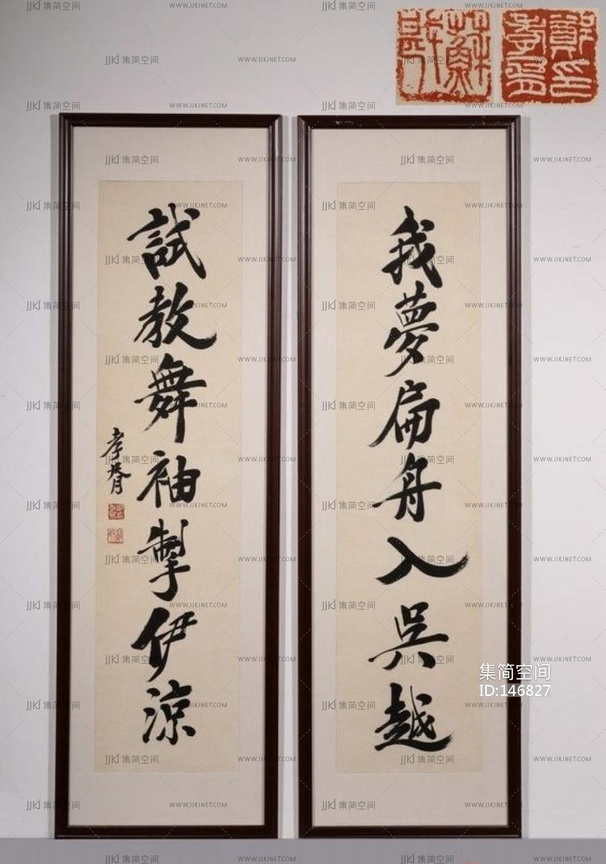 我夢扁舟入吳越
試教舞袖掣伊涼
孝胥
鄭孝胥印
蘇戡
集简空间
ID:146827
JJKJ 集简空间 WWW.JJKJNET.COM